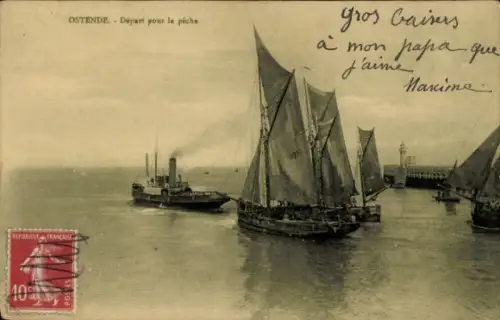 OSTENDE. - Départ pour la pêche
gros baisers
à mon papa que
j'aime
Maxime
RÉPUBLIQUE FRANÇAISE
10c
POSTES